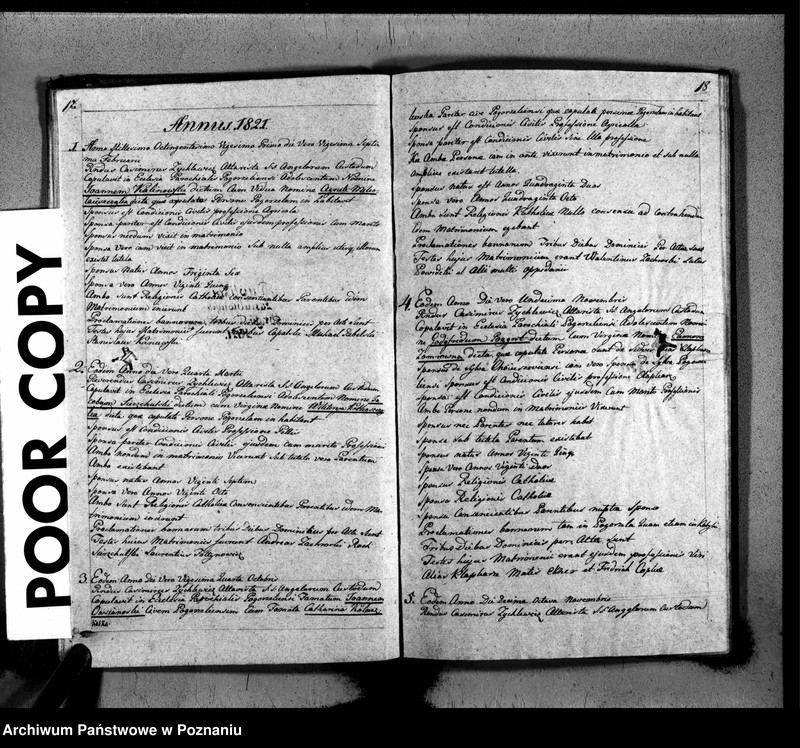 12
Annus 1821
1 Anno Millesimo Octingentesimo Vigesimo Primo die Vero Vigesima Septi
ma Februarii
Rndus Casimirus Zychlewicz Altarista SS Angelorum Custodum
Copulavit in Eclesia Parochiali Pogorzelensi Adolescentem Nomine
Joannem Kalinowski dictum Cum Vidua Nomine
dicta que copulatae Persone Pogorzelam in habitant
Sponsus est Condicionis Civilis professione Agricola
Sponsa pariter est Condicionis Civilis ejusdem professionis cum Marito
Sponsus necdum vixit in matrimonio
Sponsa Vero iam vixit in matrimonio Sub nulla amplius
existit tutela
Sponsus Natus Annos Triginta Sex
Sponsa vero Annos Viginti Quinq
Ambo Sunt Religionis Catholicae consentientibus Parentibus idem
Matrimonium inierunt
Proclamationes bannorum tribus diebus Dominicis per Acta Sunt
Testes hujus Matrimonii fuerunt Michael
Stanislaus
2. Eodem Anno die Vero Quarta Martii
Reverendus Casimirus Zychlewicz Altarista SS Angelorum Custodum
Copulavit in Eclesia Parochiali Pogorzelensi Adolescentem Nomine
dictum cum Virgine Nomine
dicta que copulatae Persone Pogorzelam in habitant
Sponsus est Condicionis Civilis Professione
Sponsa pariter Condicionis Civilis ejusdem cum marito Professionis
Ambo nondum in matrimonio Vixerunt Sub tutela vero Parentum
Ambo existebant
Sponsus natus Annos Viginti Septem
Sponsa Vero Annos Viginti Octo
Ambo Sunt Religionis Catholicae Consencientibus Parentibus idem Ma
trimonium inierunt
Proclamationes bannorum tribus Diebus Dominicis per Acta Sunt
Testes hujus Matrimonii fuerunt Andreas Roch
Laurentius
3. Eodem Anno Die Vero Vigesima Quarta Octobris
Rndus Casimirus Zychlewicz Altarista SS Angelorum Custodum
Copulavit in Eclesia Parochialis Pogorzelensi Famatum Joannem
Civem Pogorzelensem Cum Famata Catharina
18
Pariter cive Pogorzelensi que copulatae personae Pogorzelam in habitant
Sponsus est Condicionis Civilis Professione Agricolla
Sponsa pariter est Condicionis Civilis Sine Ulla professione
Ambo Persone iam in ante vixerunt in matrimonio et sub nulla
amplius existebat tutella
Sponsus natus est Annos Quadraginta Duos
Sponsa vero Annos Quadraginta Octo
Ambo Sunt Religionis Katholicae Nullo consensu ad contrahendum
idem Matrimonium egebant
Proclamationes bannorum Tribus Diebus Dominicis Per Actae Sunt
Testes hujus Matrimonium erant Walentinus
et Alii multi oppidani
4. Eodem Anno Die Vero Undecima Novembris
Rndus Casimirus Zychlewicz Altarista SS Angelorum Custodum
Copulavit in Eclesia Parochiali Pogorzelensi Adolescentem Nomi
ne dictum Cum Virgine Nomine
dicta, que copulatae Personae Sunt de
Sponsus de
Sponsus est Condicionis Civilis professione
Sponsa est Condicionis Civilis ejusdem Cum Marito Professionis
Ambe Persone nondum in Matrimonio Vixerunt
Sponsus nec Parentes nec tutores habet
Sponsa Sub tutela Parentum existebat
Sponsus natus Annos Viginti Quinq
Sponsa Vero Annos Viginti Duos
Sponsus Religionis Catholicae
Sponsa Religionis Catholicae
Sponsa Consencientibus Parentibus nupta Sponso
Proclamationes bannorum tam in Pogorzela Quam etiam in
Tribus Diebus Dominicis per Acta Sunt
Testes hujus Matrimonii erant ejusdem professionis Viri
et
5. Eodem Anno Die Decima Octava Novembris
Rndus Casimirus Zychlewicz Altarista SS Angelorum Custodum
POOR COPY
Archiwum Państwowe w Poznaniu